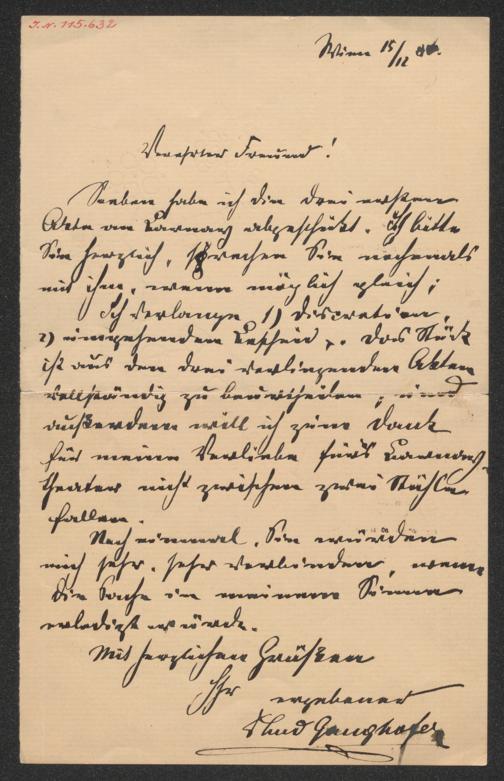 J.N. 115.632
Wien 15/12 86.
Verehrter Freund!
Soeben habe ich die drei ersten
Akte an abgeschickt. Ich bitte
Sie herzlich, sprechen Sie nochmals
mit ihm, wenn möglich gleich;
Ich verlange 1) Discretion,
2) eingehenden Bescheid. das Stück
ist aus den drei vorliegenden Akten
vollständig zu beurtheilen; und
außerdem will ich zum Dank
für meine Vorliebe fürs
theater nicht zwischen zwei Stühle
fallen.
Noch einmal, Sie würden
mich sehr, sehr verbinden, wenn
die Sache in meinem Sinne
erledigt würde.
Mit herzlichen Grüßen
Ihr ergebener
Ganghofer